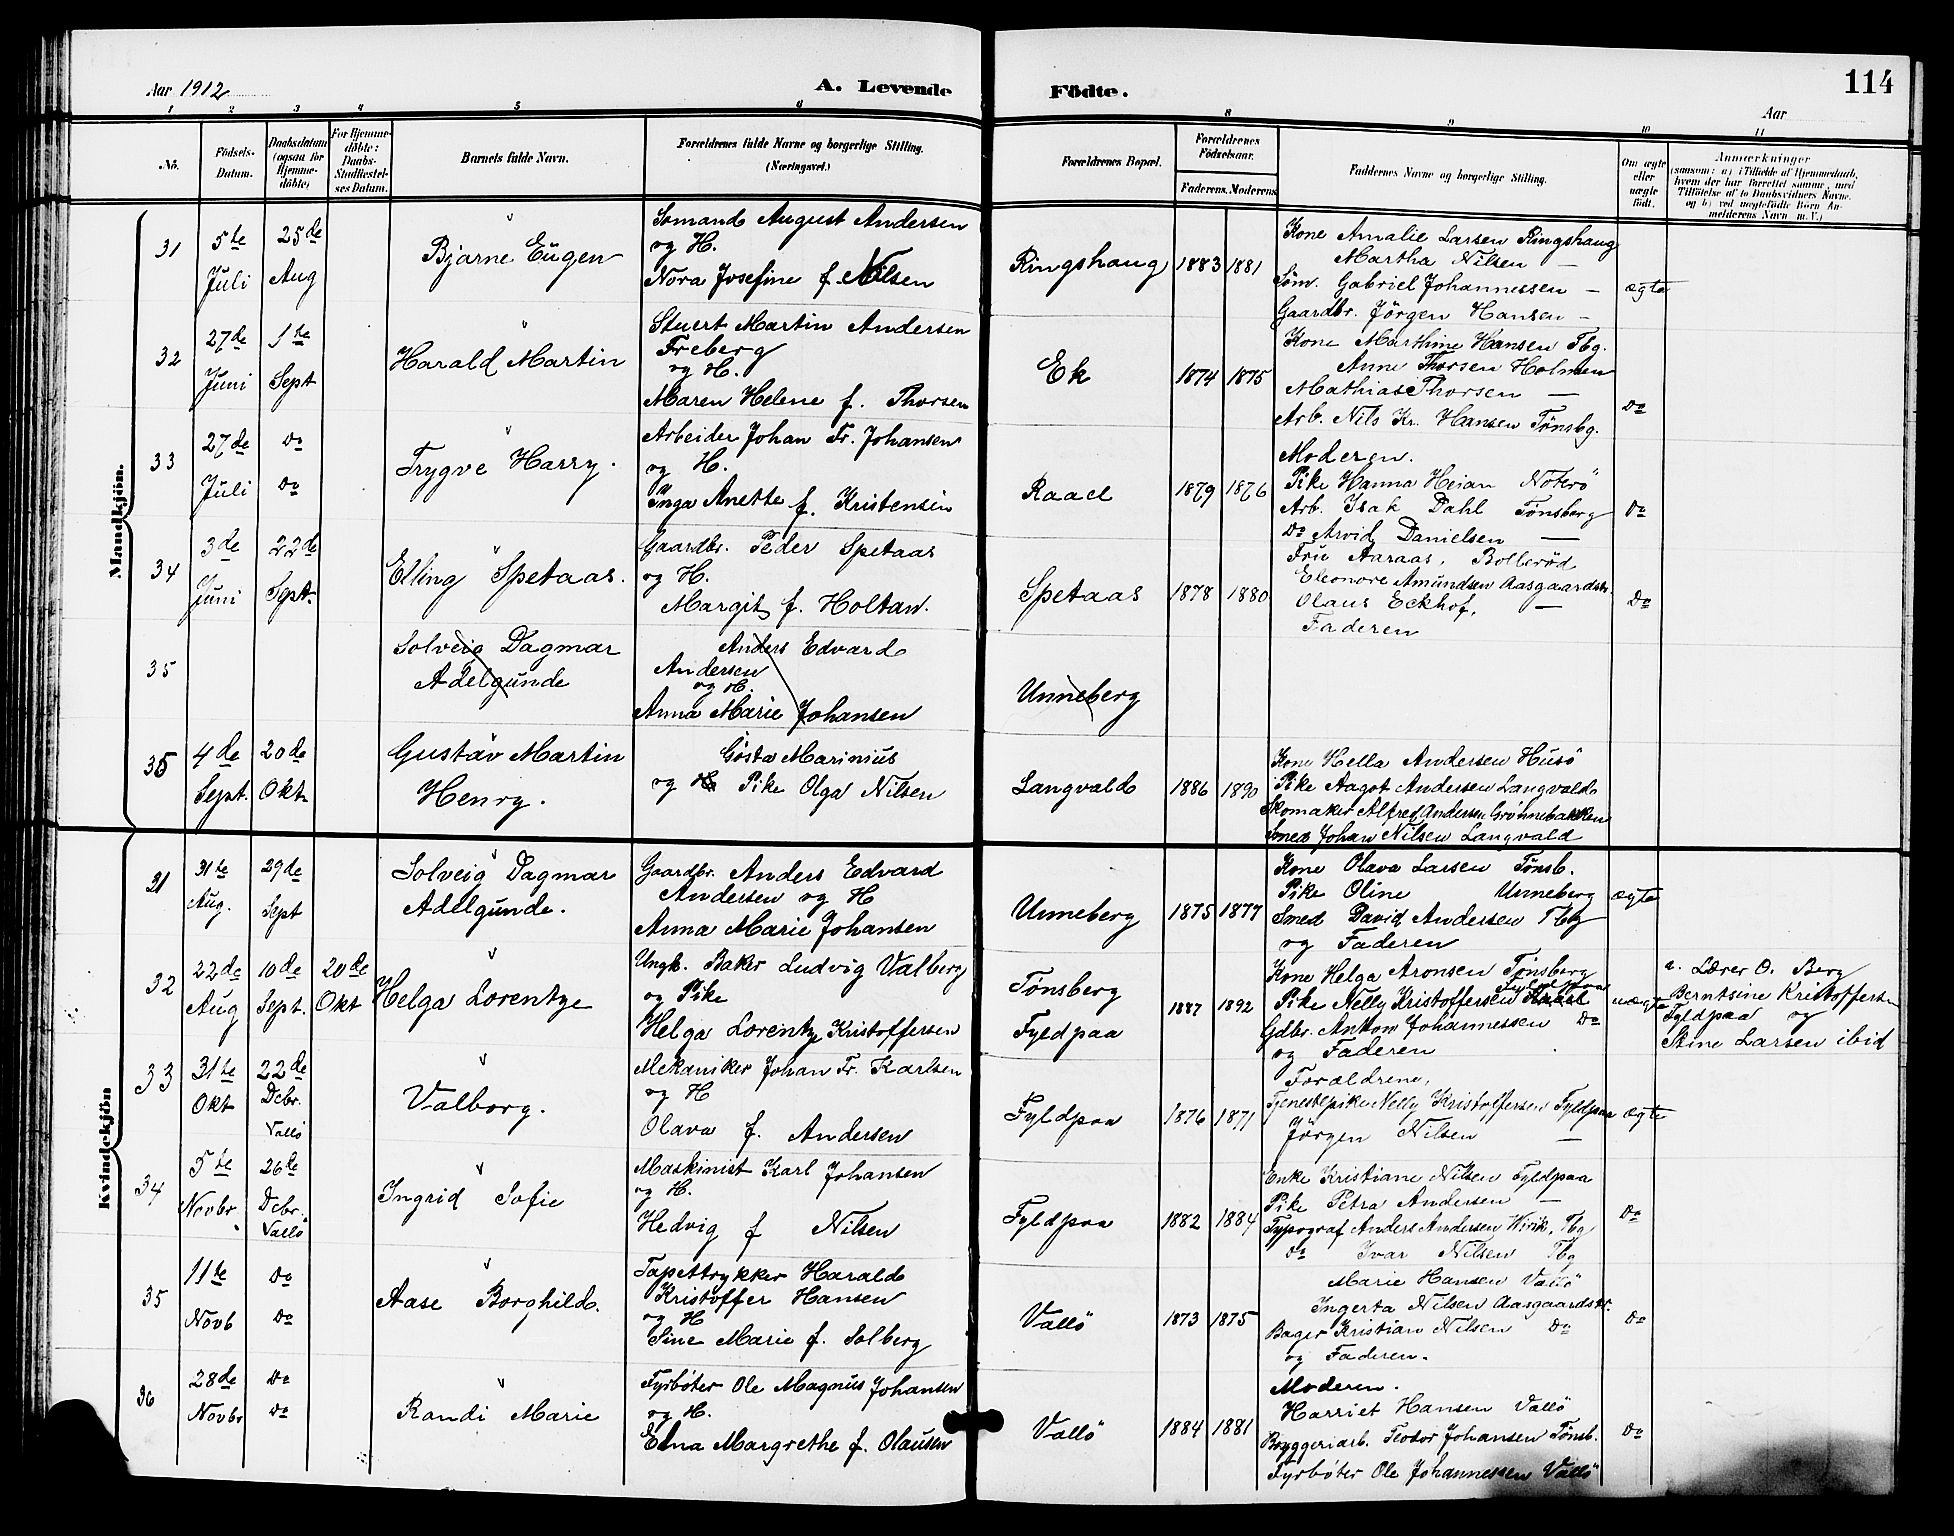 Aar 1912
A. Levende Födte.
114
Aar
1 2 3 4 5 6 8 9 10 11
No.
Födsels-
Datum.
Daabsdatum
(ogsaa for
Hjemme-
döbte)
For Hjemme-
döbte:
Daabs-
Stadfæstel-
ses Datum.
Barnets fulde Navn.
Forældrenes fulde Navne og borgerlige Stilling.
(Næringsvei.)
Forældrenes Bopæl.
Forældrenes
Födselsaar.
Faderens. Moderens.
Faddernes Navne og borgerlige Stilling.
Om ægte
eller
uægte
födt.
Anmærkninger
(saasom: a) i Tilfælde af Hjemmedaab,
hvem der har forrettet samme, med
Tilföielse af to Daabsvidners Navne.
og b) ved uægtefödte Börn An-
melderens Navn m. V.)
Mandkjön.
31
5te
Juli
25de
Aug
Bjarne Eugen
Sømand August Andersen
og H.
Nora Josefine f. Nilsen
Ringshaug
1883 1881
Kone Amalie Larsen Ringshaug
Martha Nilsen —
Søm. Gabriel Johannessen —
Gaardbr. Jörgen Hansen —
ægte
32
27de
Juni
1ste
Sept
Harald Martin
Stuert Martin Andersen
Freberg
og H.
Maren Helene f. Thorsen
Ek
1874 1875
Kone Marthine Hansen Tbg.
Anne Thorsen Holmen
Mathias Thorsen —
Arb. Nils Kr. Hansen Tønsbg.
Do
33
27de
Juli
Do
Do
Trygve Harry.
Arbeider Johan Fr. Johansen
og H.
Inga Anette f. Kristensen
Raael
1879 1876
Moderen.
Pike Hanna Heian Noterö
Arb. Isak Dahl Tønsberg
Do Arvid Danielsen —
Do
34
3de
Juni
22de
Sept.
Elling Spetaas.
Gaardbr. Peder Spetaas
og H.
Margit f. Holtan.
Spetaas
1878 1880
Fru Aaraas, Bollerød
Eleonore Amundsen Aasgaardstr.
Olaus Eckhof, —
Faderen
Do
35
Solveig Dagmar
Adelgunde
Anders Edvard
Andersen
og H.
Anna Marie Johansen
Unneberg
35
4de
Sept.
20de
Okt.
Gustav Martin
Henry.
Gösta Marinius
og Pike Olga Nilsen
Langvald
1886 1890
Kone Hella Andersen Husö
Pike Aagot Andersen Langvald
Skomaker Alfred Andersen Grønnebakken
Smed Johan Nilsen Langvald
Kvindekjön
31
31te
Aug.
29de
Sept
Solveig Dagmar
Adelgunde.
Gaardbr. Anders Edvard
Andersen og H
Anna Marie Johansen
Unneberg
1875 1877
Kone Olava Larsen Tønsb.
Pike Oline Unneberg
Smed David Andersen Tbg
og Faderen
ægte
32
22de
Aug
10de
Sept.
20de
Okt
Helga Lorentze
Ungk. Baker Ludvig Valberg
og Pike
Helga Lorentze Kristoffersen
Tönsberg
Fyldpaa
1887 1892
Kone Helga Aronsen Tønsberg
Pike Nelly Kristoffersen Fyldpaa
Gdbr. Antom Johannessen Do
og Faderen
uægte
a. Lærer O. Berg
Berntsine Kristoffersen
Fyldpaa og
Stine Larsen ibid
33
31te
Okt
22de
Debr.
Vallö
Valborg.
Mekaniker Johan Fr. Karlsen
og H
Olava f. Andersen
Fyldpaa
1876 1871
Forældrene,
Tjenestepike Nelly Kristoffersen Fyldpaa
Jörgen Nilsen —
ægte
34
5te
Novbr.
26de
Debr.
Vallö
Ingrid Sofie
Maskinist Karl Johansen
og H.
Hedvig f Nilsen
Fyldpaa
1882 1884
Enke Kristiane Nilsen Fyldpaa
Pike Petra Andersen —
Typograf Anders Andersen Wirik. Tbg
Do Ivar Nilsen Tbg
Do
35
11te
Novb
Do
Do
Aase Borghild.
Tapettrykker Harald
Kristoffer Hansen
og H
Sine Marie f. Solberg
Vallö
1873 1875
Marie Hansen Vallö
Ingerta Nilsen Aasgaardstr.
Bager Kristian Nilsen Do
og Faderen.
Do
36
28de
Novbr
Do
Do
Randi Marie
Fyrbøter Ole Magnus Johansen
og H.
Edna Margrethe f. Olausen
Vallö
1884 1881
Moderen.
Harriet Hansen Vallö
Bryggeriarb. Teodor Johansen Tønsb.
Fyrbøter Ole Johannessen Vallö
Do